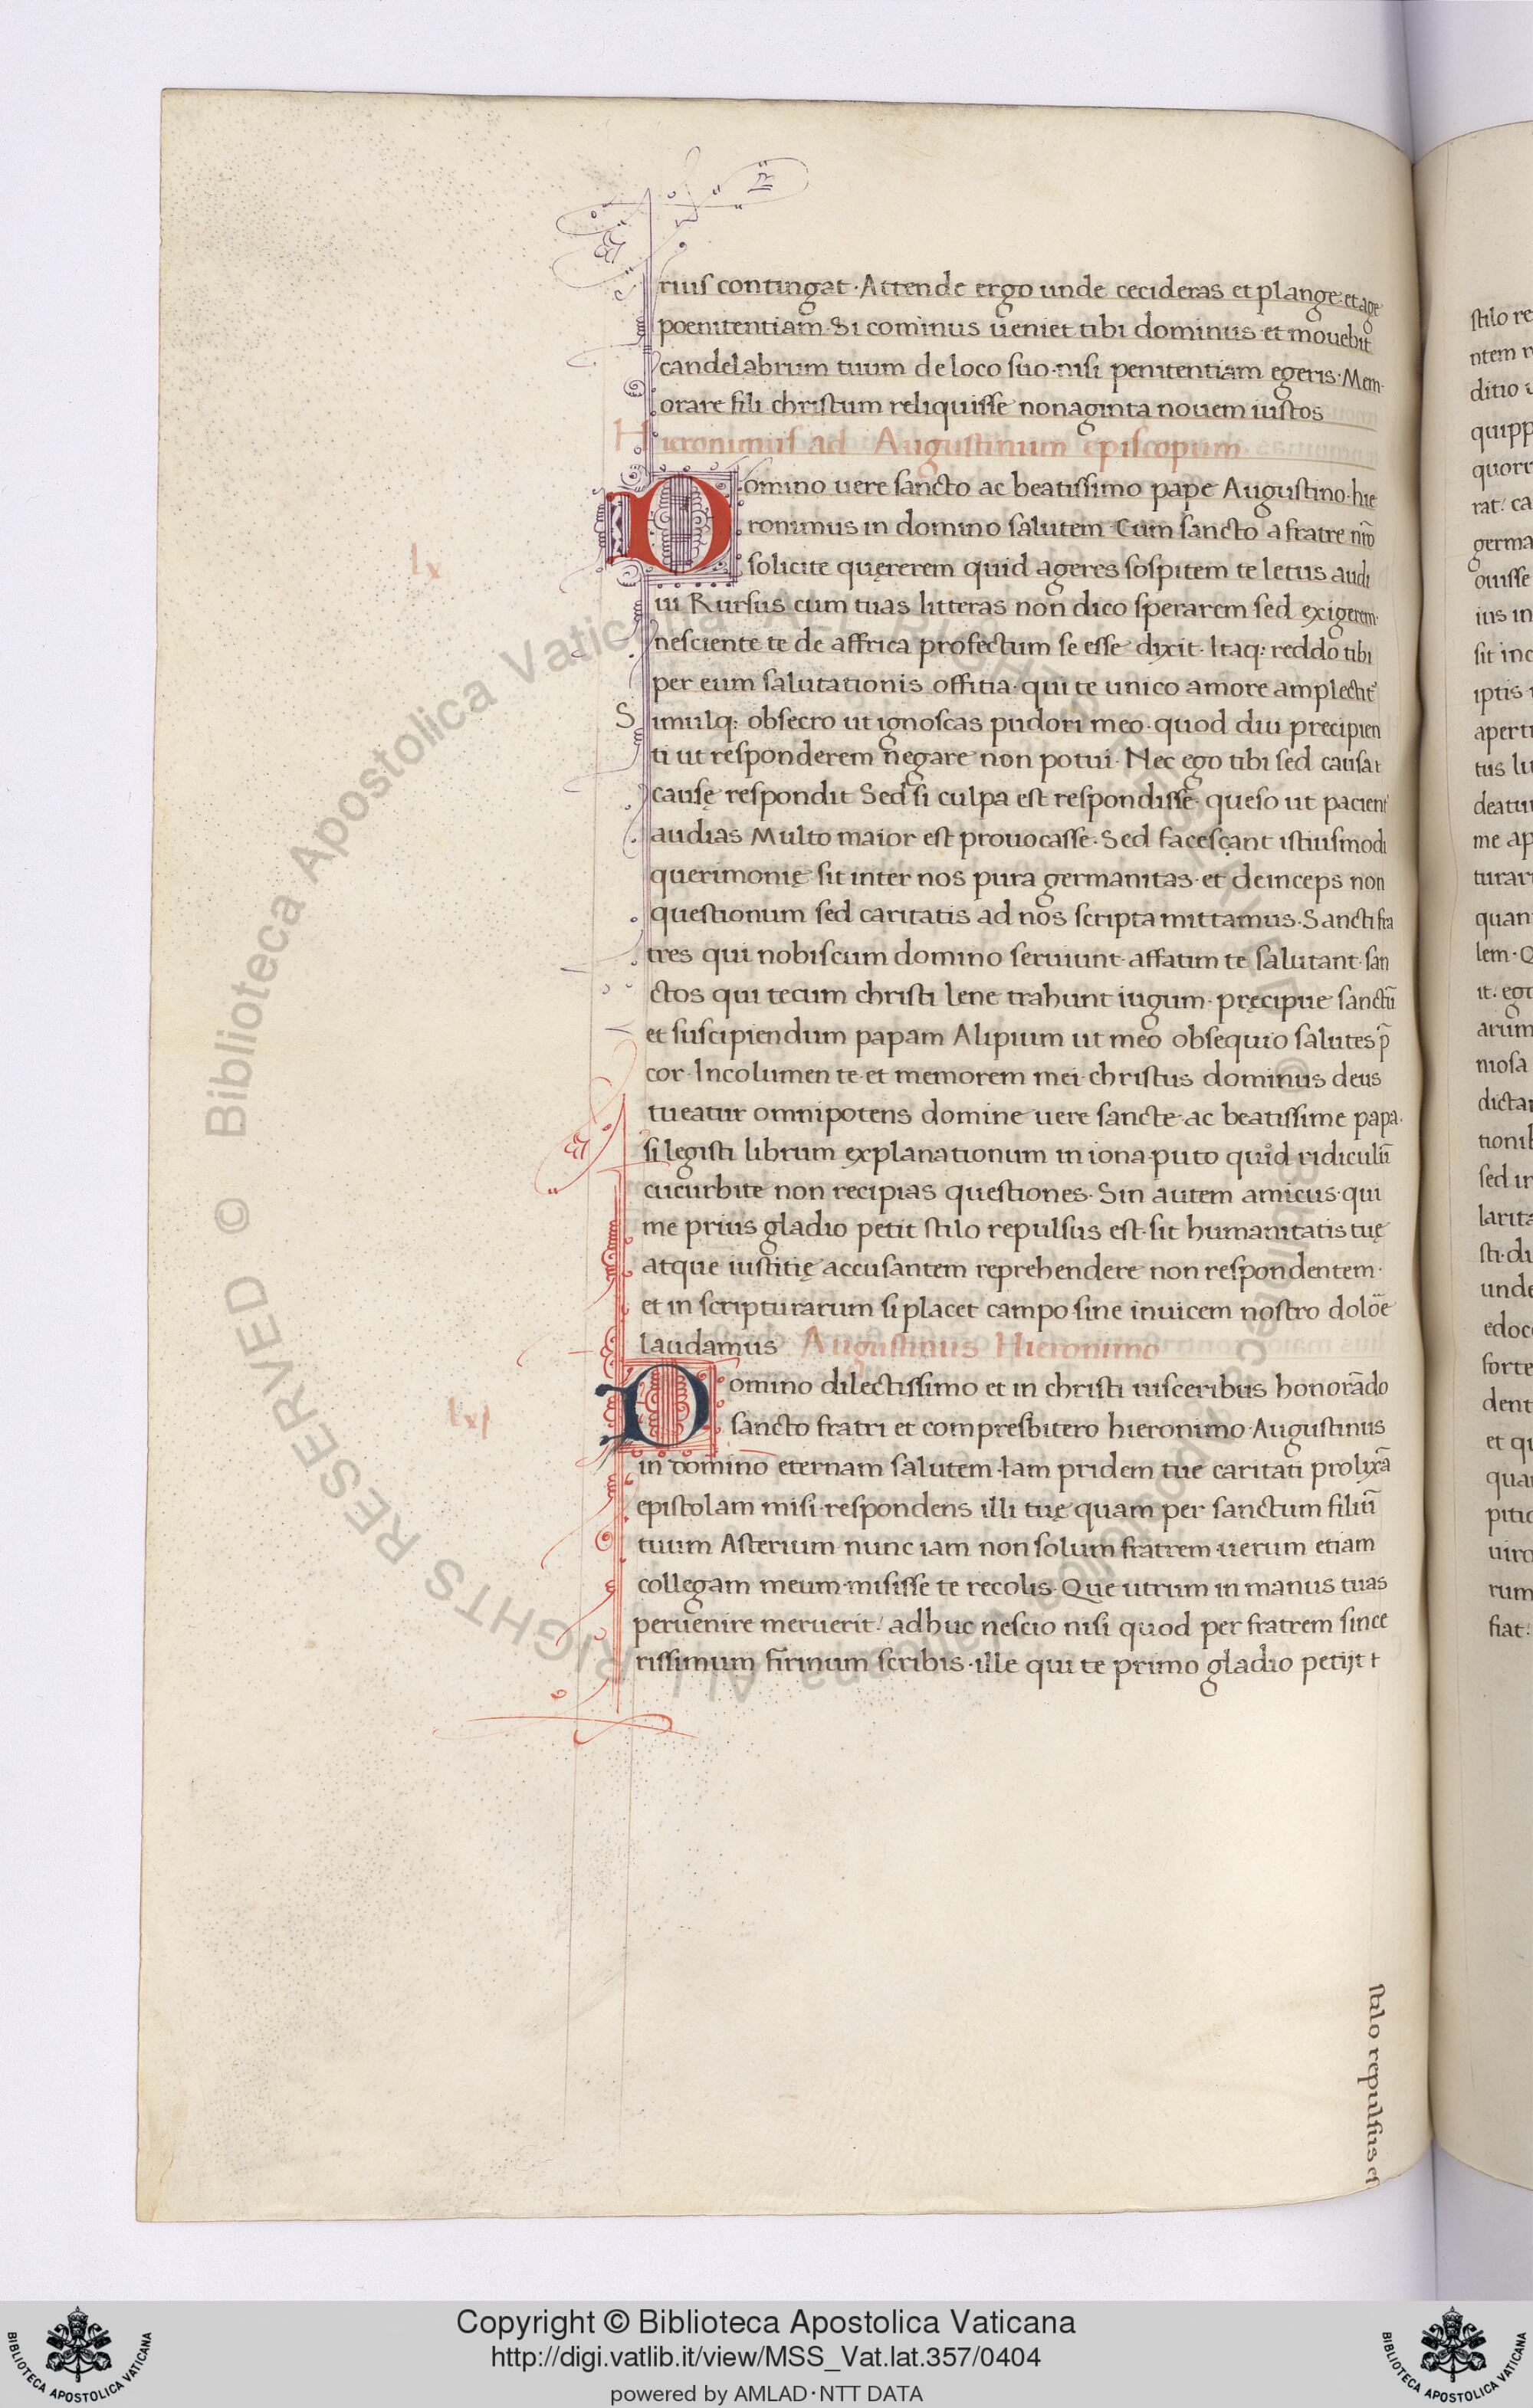 rius contingat · Attende ergo unde cecideras et plange · et age
poenitentiam · Si cominus ueniet tibi dominus et mouebit
candelabrum tuum de loco suo · nisi penitentiam egeris · Mem
orare fili christum reliquisse nonaginta nouem iustos
Hieronimus ad Augustinum episcopum
lx
Domino uere sancto ac beatissimo pape Augustino · hie
ronimus in domino salutem Cum sancto a fratre nr̄o
solicite quęrerem quid ageres sospitem te letus audi
ui Rursus cum tuas litteras non dico sperarem sed exigerem ·
nesciente te de affrica profectum se esse dixit · Itaq: reddo tibi
per eum salutationis offitia · qui te unico amore amplectit᷑
Simulq: obsecro ut ignoscas pudori meo · quod diu precipien
ti ut responderem negare non potui · Nec ego tibi sed causa t
causę respondit Sed si culpa est respondisse · queso ut pacient᷑
audias Multo maior est prouocasse · Sed facescant istiusmodi
querimonię sit inter nos pura germanitas · et deinceps non
questionum sed caritatis ad nos scripta mittamus · Sancti fra
tres qui nobiscum domino seruiunt · affatim te salutant · san
ctos qui tecum christi lene trahunt iugum · pręcipue sanctū
et suscipiendum papam Alipium ut meo obsequio salutes p̄
cor · Incolumen te · et memorem mei · christus dominus deus
tueatur omnipotens domine uere sancte · ac beatissime papa ·
si legisti librum explanationum in iona · puto quid ridiculū
cucurbite non recipias questiones · Sin autem amicus · qui
me prius gladio petit stilo repulsus est · sit humanitatis tuę
atque iustitię accusantem reprehendere non respondentem ·
et in scripturarum si placet campo sine inuicem nostro doloēe
laudamus Augustinus Hieronimo
lxj
Domino dilectissimo et in christi uisceribus honorādo
sancto fratri et compresbitero hieronimo · Augustinus
in domino eternam salutem · Iam pridem tue caritati prolixā
epistolam misi · respondens illi tuę quam per sanctum filiū
tuum Asterium nunc iam non solum fratrem uerum etiam
collegam meum · misisse te recolis · Que utrum in manus tuas
peruenire meruerit : adhuc nescio nisi quod per fratrem since
rissimum firmum scribis · ille qui te primo gladio petijt t
stilo repulsus est
Copyright © Biblioteca Apostolica Vaticana
http://digi.vatlib.it/view/MSS_Vat.lat.357/0404
powered by AMLAD · NTT DATA
BIBLIOTECA APOSTOLICA VATICANA
BIBLIOTECA APOSTOLICA VATICANA